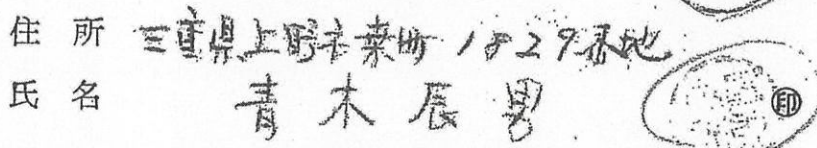 住所 三重県上野市桑町1829番地
氏名 青木辰男 印